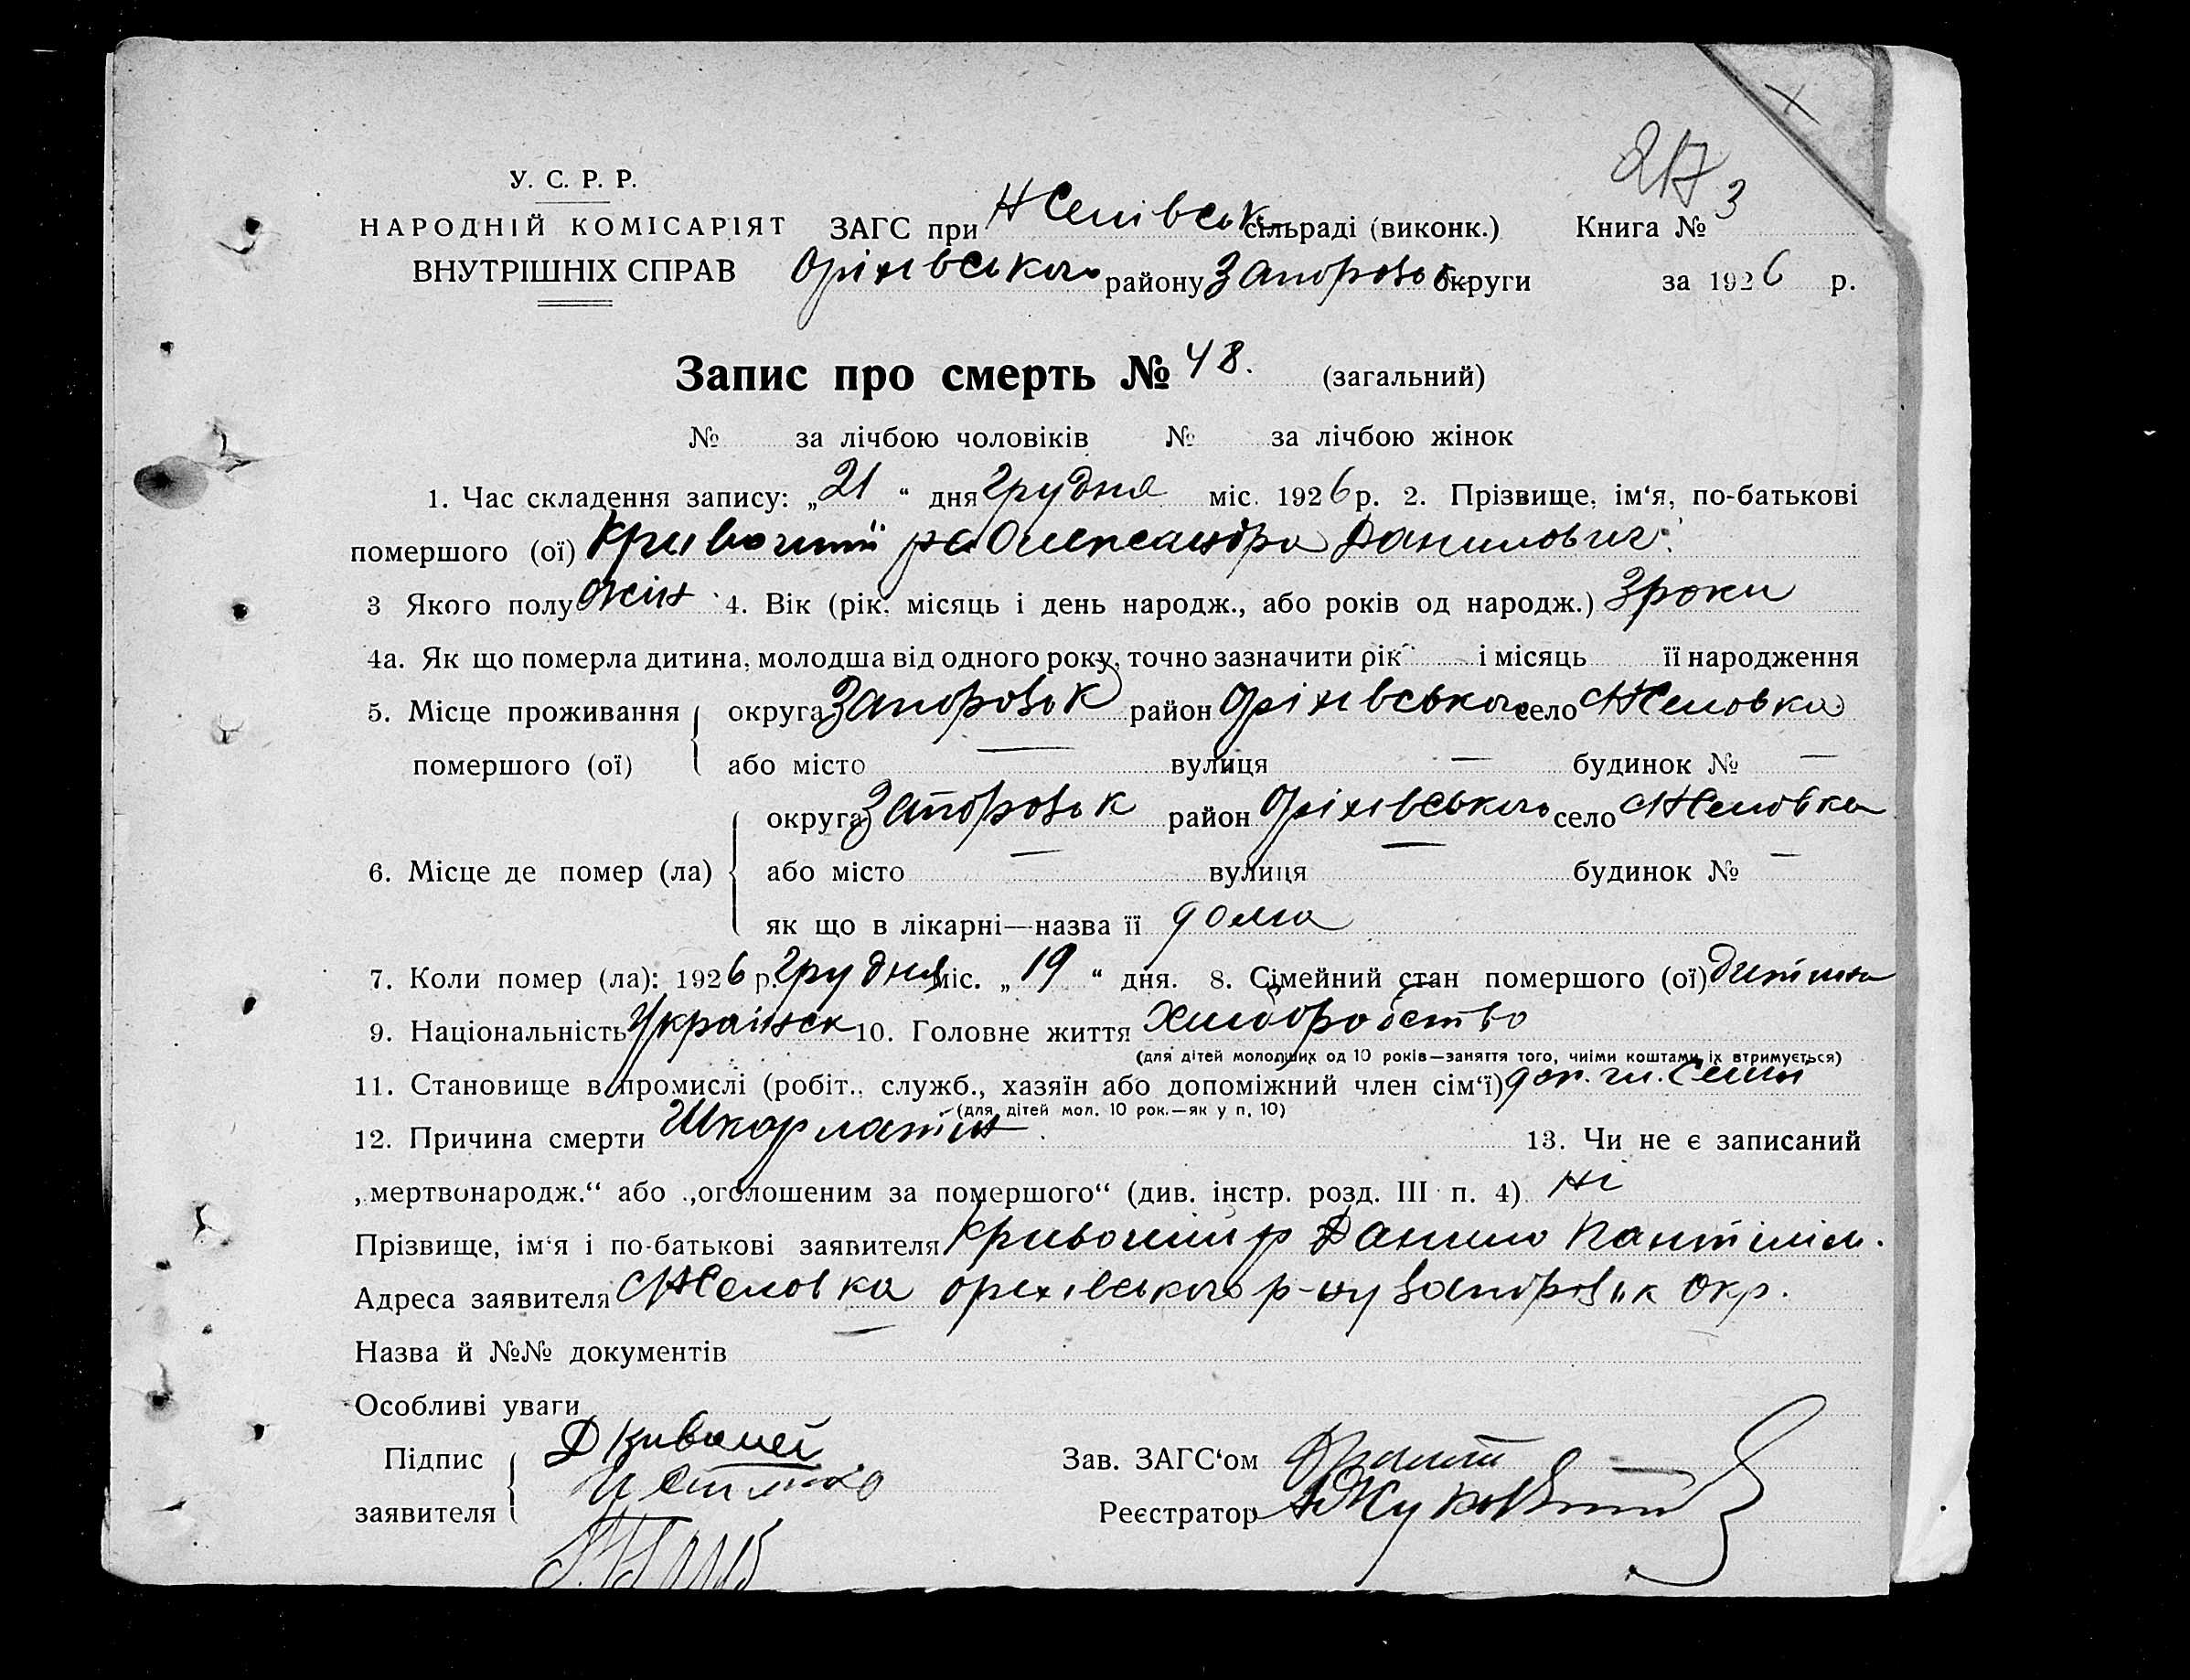 217
У. С. Р. Р.
НАРОДНІЙ КОМІСАРІЯТ ЗАГС при сільраді (виконк.) Книга № 3
ВНУТРІШНІХ СПРАВ Оріхівського району Запорозьк округи за 1926 р.
Запис про смерть № 48. (загальний)
№ за лічбою чоловіків № за лічбою жінок
1. Час складення запису: „21“ дня грудня міс. 1926 р. 2. Прізвище, ім‘я, по-батькові
помершого (ої) Олександра Данилович
3 Якого полу жін 4. Вік (рік. місяць і день народж., або років од народж.) 3 роки
4а. Як що померла дитина, молодша від одного року, точно зазначити рік і місяць її народження
5. Місце проживання округа Запорозьк район Оріхівського село Желовка
помершого (ої) або місто — вулиця — будинок № —
округа Запорозьк район Оріхівського село Желовка
6. Місце де помер (ла) або місто — вулиця — будинок № —
як що в лікарні—назва її дома
7. Коли помер (ла): 1926 р. грудня міс. „19“ дня. 8. Сімейний стан помершого (ої) дитина
9. Національність Українск 10. Головне життя Хлиборобство
(для дітей молодших од 10 років—заняття того, чиїми коштами їх втримується)
11. Становище в промислі (робіт., служб., хазяїн або допоміжний член сім‘ї) доп. чл. семи
(для дітей мол. 10 рок.—як у п. 10)
12. Причина смерти Шкарлатин 13. Чи не є записаний
„мертвонародж.“ або „оголошеним за помершого“ (див. інстр. розд. III п. 4) ні
Прізвище, ім‘я і по-батькові заявителя Данило
Адреса заявителя Желовка орехівського р-ну Запорозьк окр.
Назва й №№ документів —
Особливі уваги
Підпис
заявителя
Зав. ЗАГС‘ом
Реєстратор